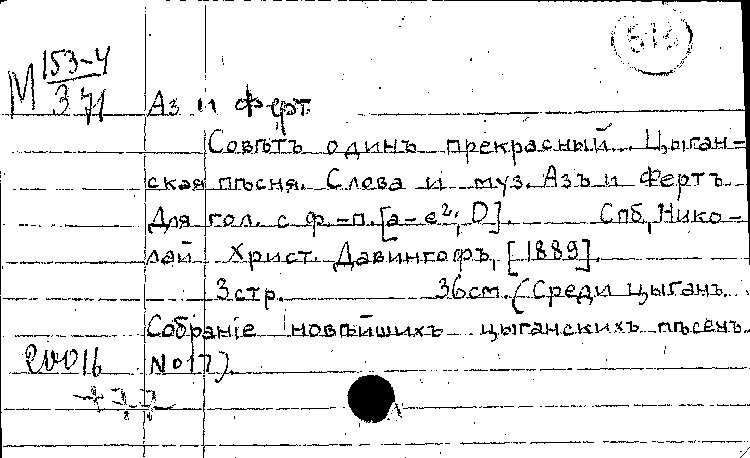 М 153-4
371
Аз и Ферт
Совѣтъ одинъ прекрасный. Цыган-
ская пѣсня. Слова и муз. Азъ и Фертъ
Для гол. с ф.-п. [a-e²; D]. Спб, Нико-
лай Христ. Давингофъ, [1889].
3 стр. 36 см. (Среди цыганъ.
Собраніе новѣйшихъ цыганскихъ пѣсенъ.
№ 17).